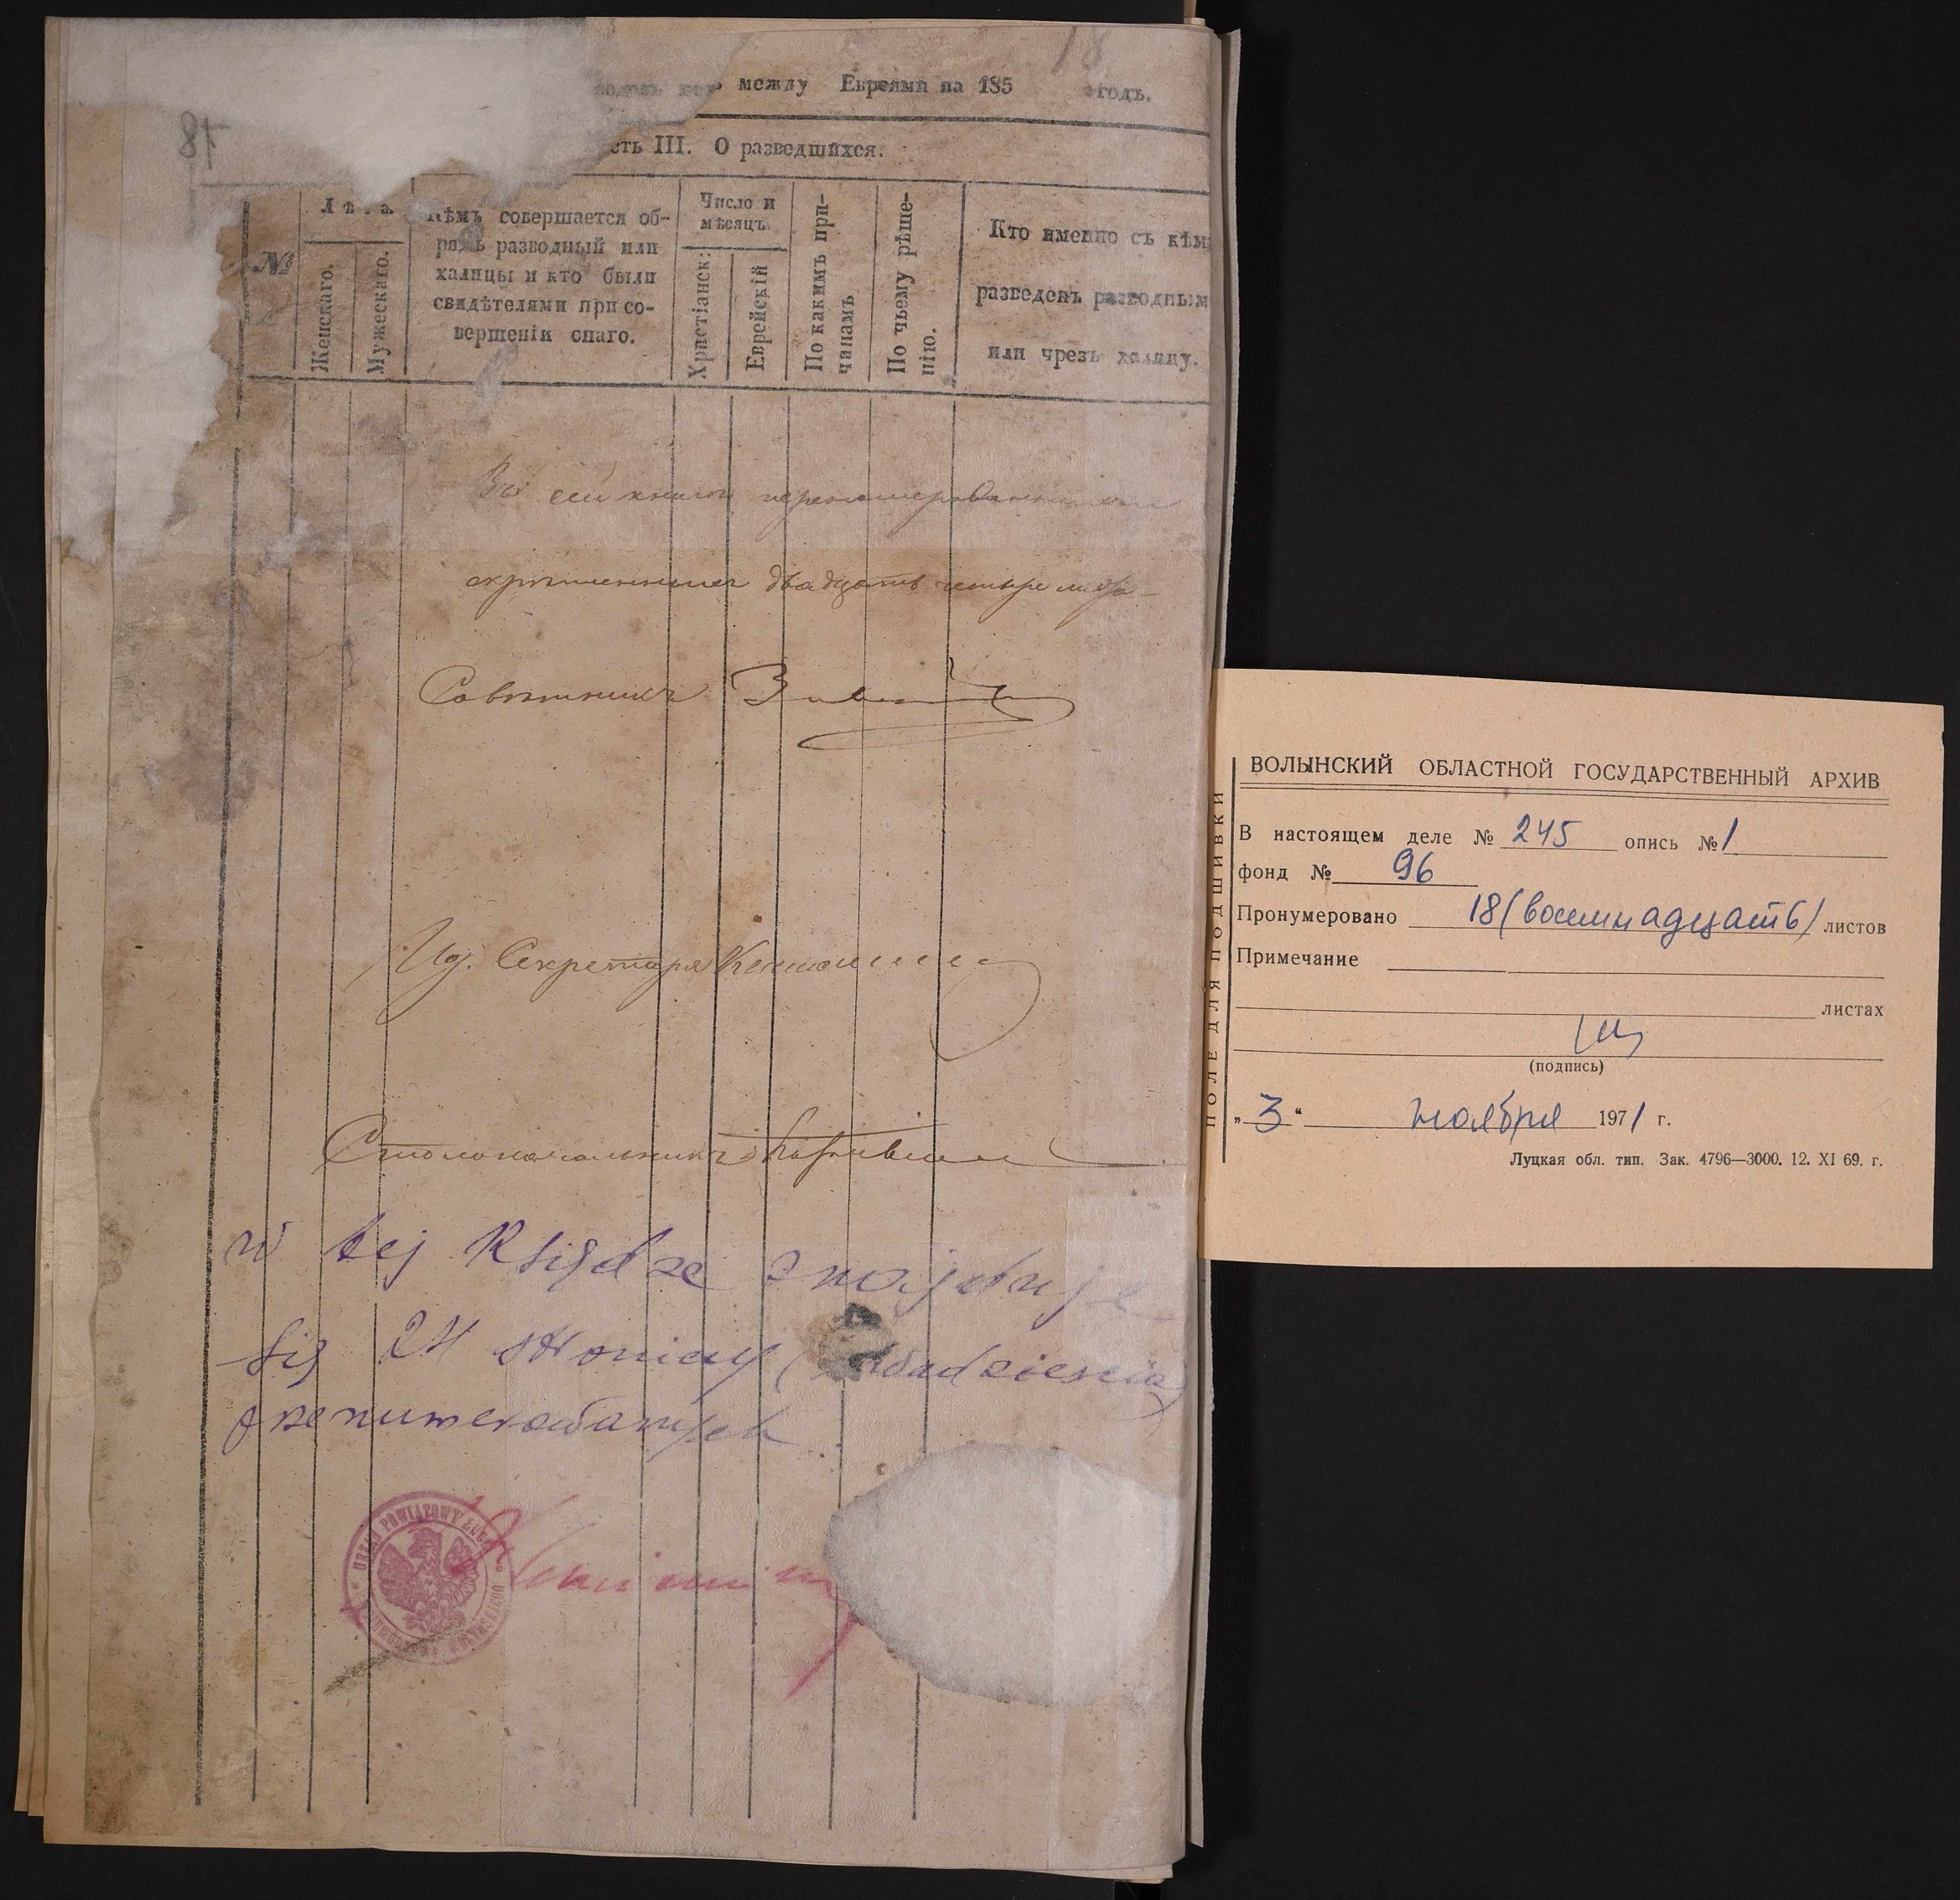 18
между Евреями на 185 годъ.
сть III. О разведшихся.
№
Лѣта.
Женскаго.
Мужескаго.
Кѣмъ совершается об-
рядъ разводный или
халицы и кто были
свидѣтелями при со-
вершеніи онаго.
Число и
мѣсяцъ.
Христіанск:
Еврейскій
По какимъ при-
чинамъ
По чьему рѣше-
нію.
Кто именно съ кѣмъ
разведенъ разводнымъ
или чрезъ халицу.
Въ сей книги перенумерованныхъ
скрѣпленныхъ двадцать четыре листа
Совѣтникъ
Ид. Секретаря
Столоначальникъ
w tej Księdze znajduje
się 24 stronicy ( dwadzieścia)
przenumerowanych
URZĄD POWIATOWY
ВОЛЫНСКИЙ ОБЛАСТНОЙ ГОСУДАРСТВЕННЫЙ АРХИВ
ПОЛЕ ДЛЯ ПОДШИВКИ
В настоящем деле № 245 опись № 1
фонд № 96
Пронумеровано 18 (восемнадцать) листов
Примечание
листах
(подпись)
„3“ ноября 1971 г.
Луцкая обл. тип. Зак. 4796—3000. 12. XI 69. г.